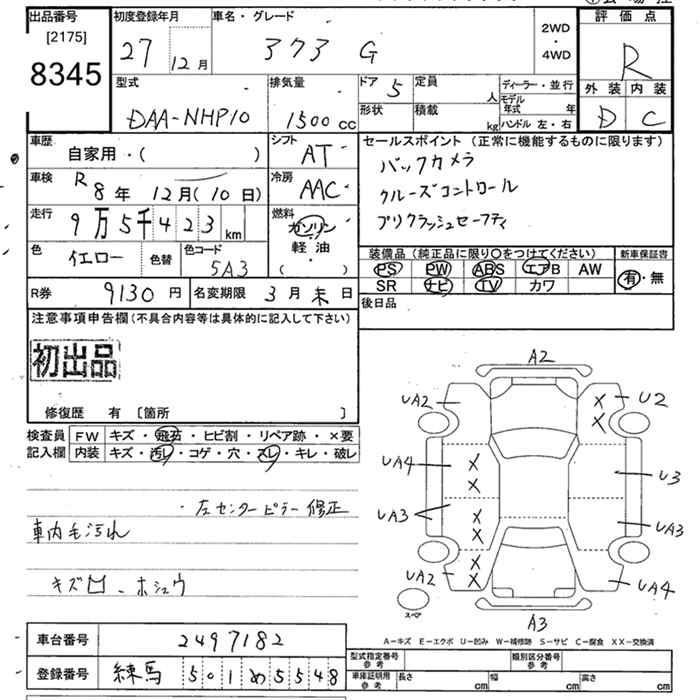 出品番号 初度登録年月 車名・グレード 評価点
[2175]
8345
27 12月 アクア G 2WD・4WD R
型式 排気量 ドア 5 定員 人 ディーラー・並行 外装 内装
DAA-NHP10 1500cc 形状 積載 kg モデル年式 年 ハンドル 左・右 D C
車歴 自家用・( ) シフト AT セールスポイント(正常に機能するものに限ります)
車検 R8年 12月(10日) 冷房 AAC
バックカメラ
クルーズコントロール
プリクラッシュセーフティ
走行 9万5千423km 燃料 ガソリン・軽油・( )
色 イエロー 色替 色コード 5A3
装備品(純正品に限り○をつけてください) 新車保証書
PS PW ABS エアB AW 有・無
SR ナビ TV カワ
R券 9130円 名変期限 3月末日 後日品
注意事項申告欄(不具合内容等は具体的に記入して下さい)
初出品
修復歴 有 〔箇所 〕
検査員記入欄 FW キズ・飛石・ヒビ割・リペア跡・×要
内装 キズ・汚レ・コゲ・穴・スレ・キレ・破レ
・左センターピラー修正
車内毛汚れ
キズ凹 - ホシュウ
A2
UA2 U2
UA4 U3
UA3 UA3
UA2 UA4
スペア A3
A-キズ E-エクボ U-凹み W-補修跡 S-サビ C-腐食 XX-交換済
車台番号 2497182
登録番号 練馬 501め5548
型式指定番号 参考 類別区分番号 参考
車庫証明用 参考 長さ cm 幅 cm 高さ cm